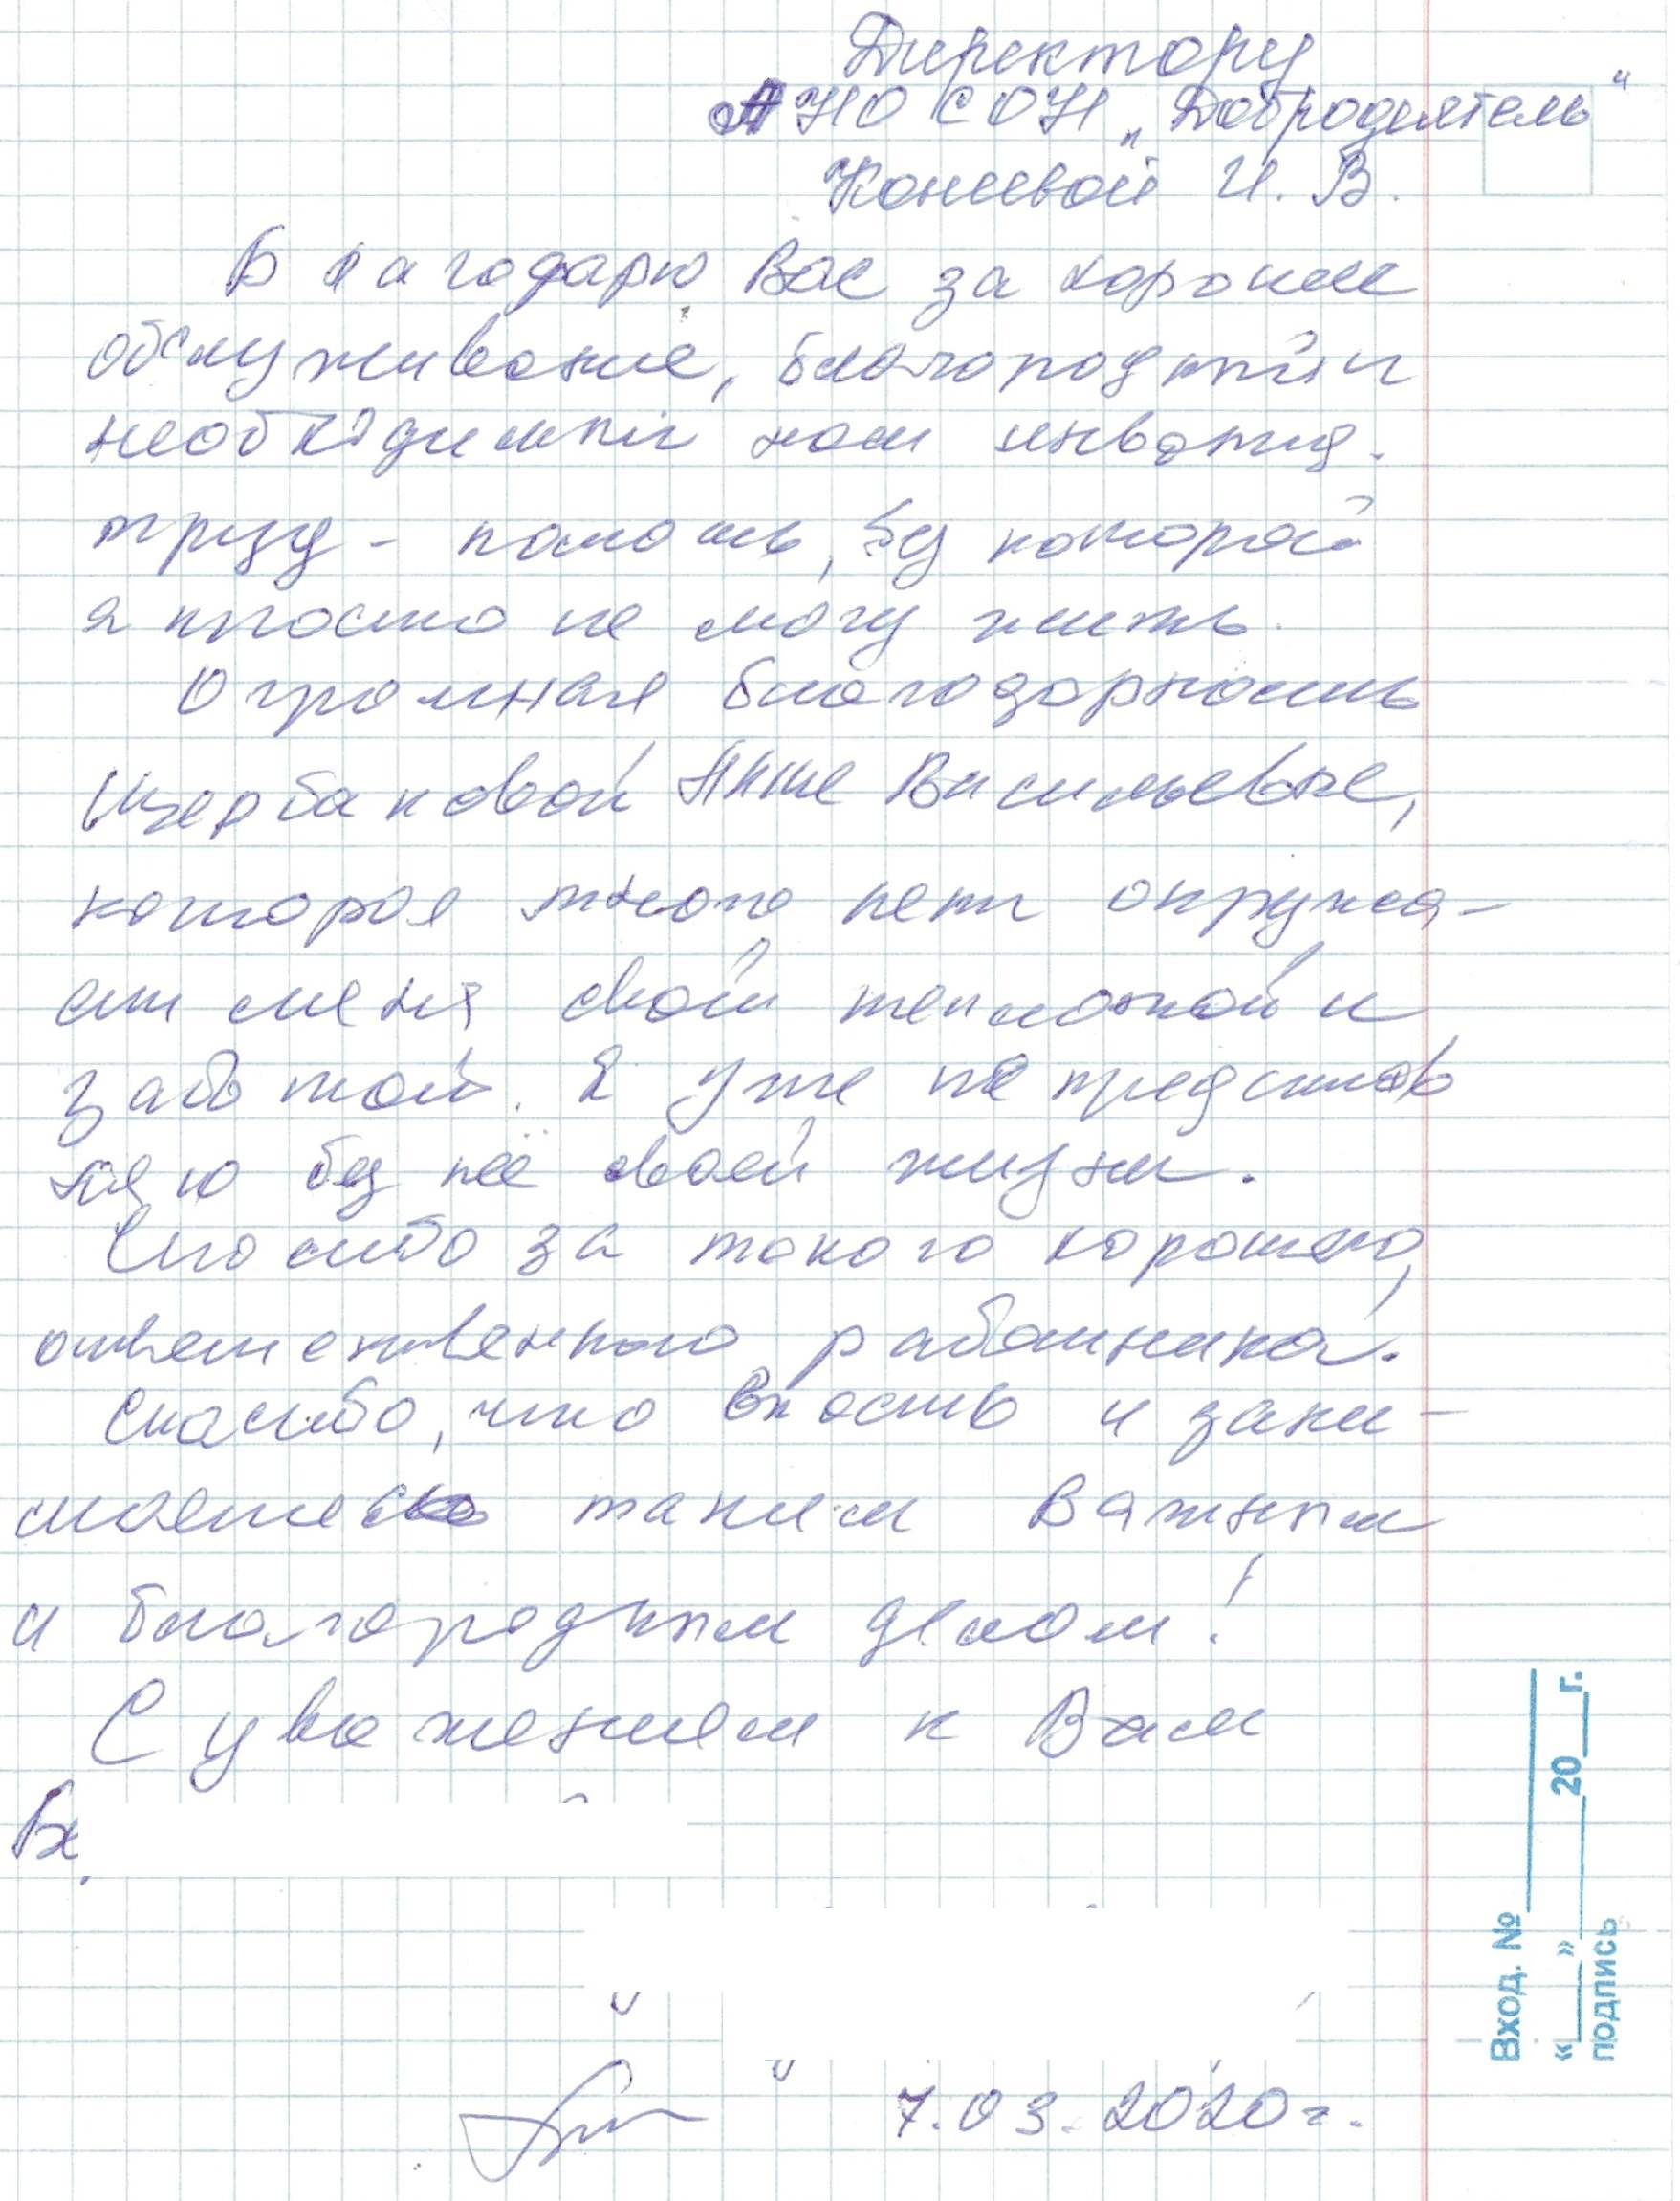 Директору
АНО СОН „Добродеятель"
Конивой И. В.
Благодарю Вас за хорошее
обслуживание, благородный и
необходимый нам инвалид.
труд - помощь, без которой
я просто не могу жить.
Огромная благодарность
Щербаковой Анне Васильевне,
которая много лет окружа-
ет меня своей теплотой и
заботой. Я уже не представ
ляю без неё своей жизни.
Спасибо за такого хорошего,
ответственного работника.
Спасибо, что Вы есть и зани-
маетесь таким важным
и благородным делом!
С уважением к Вам
7.03.2020 г.
Вход. №
«___» ______ 20___ г.
подпись